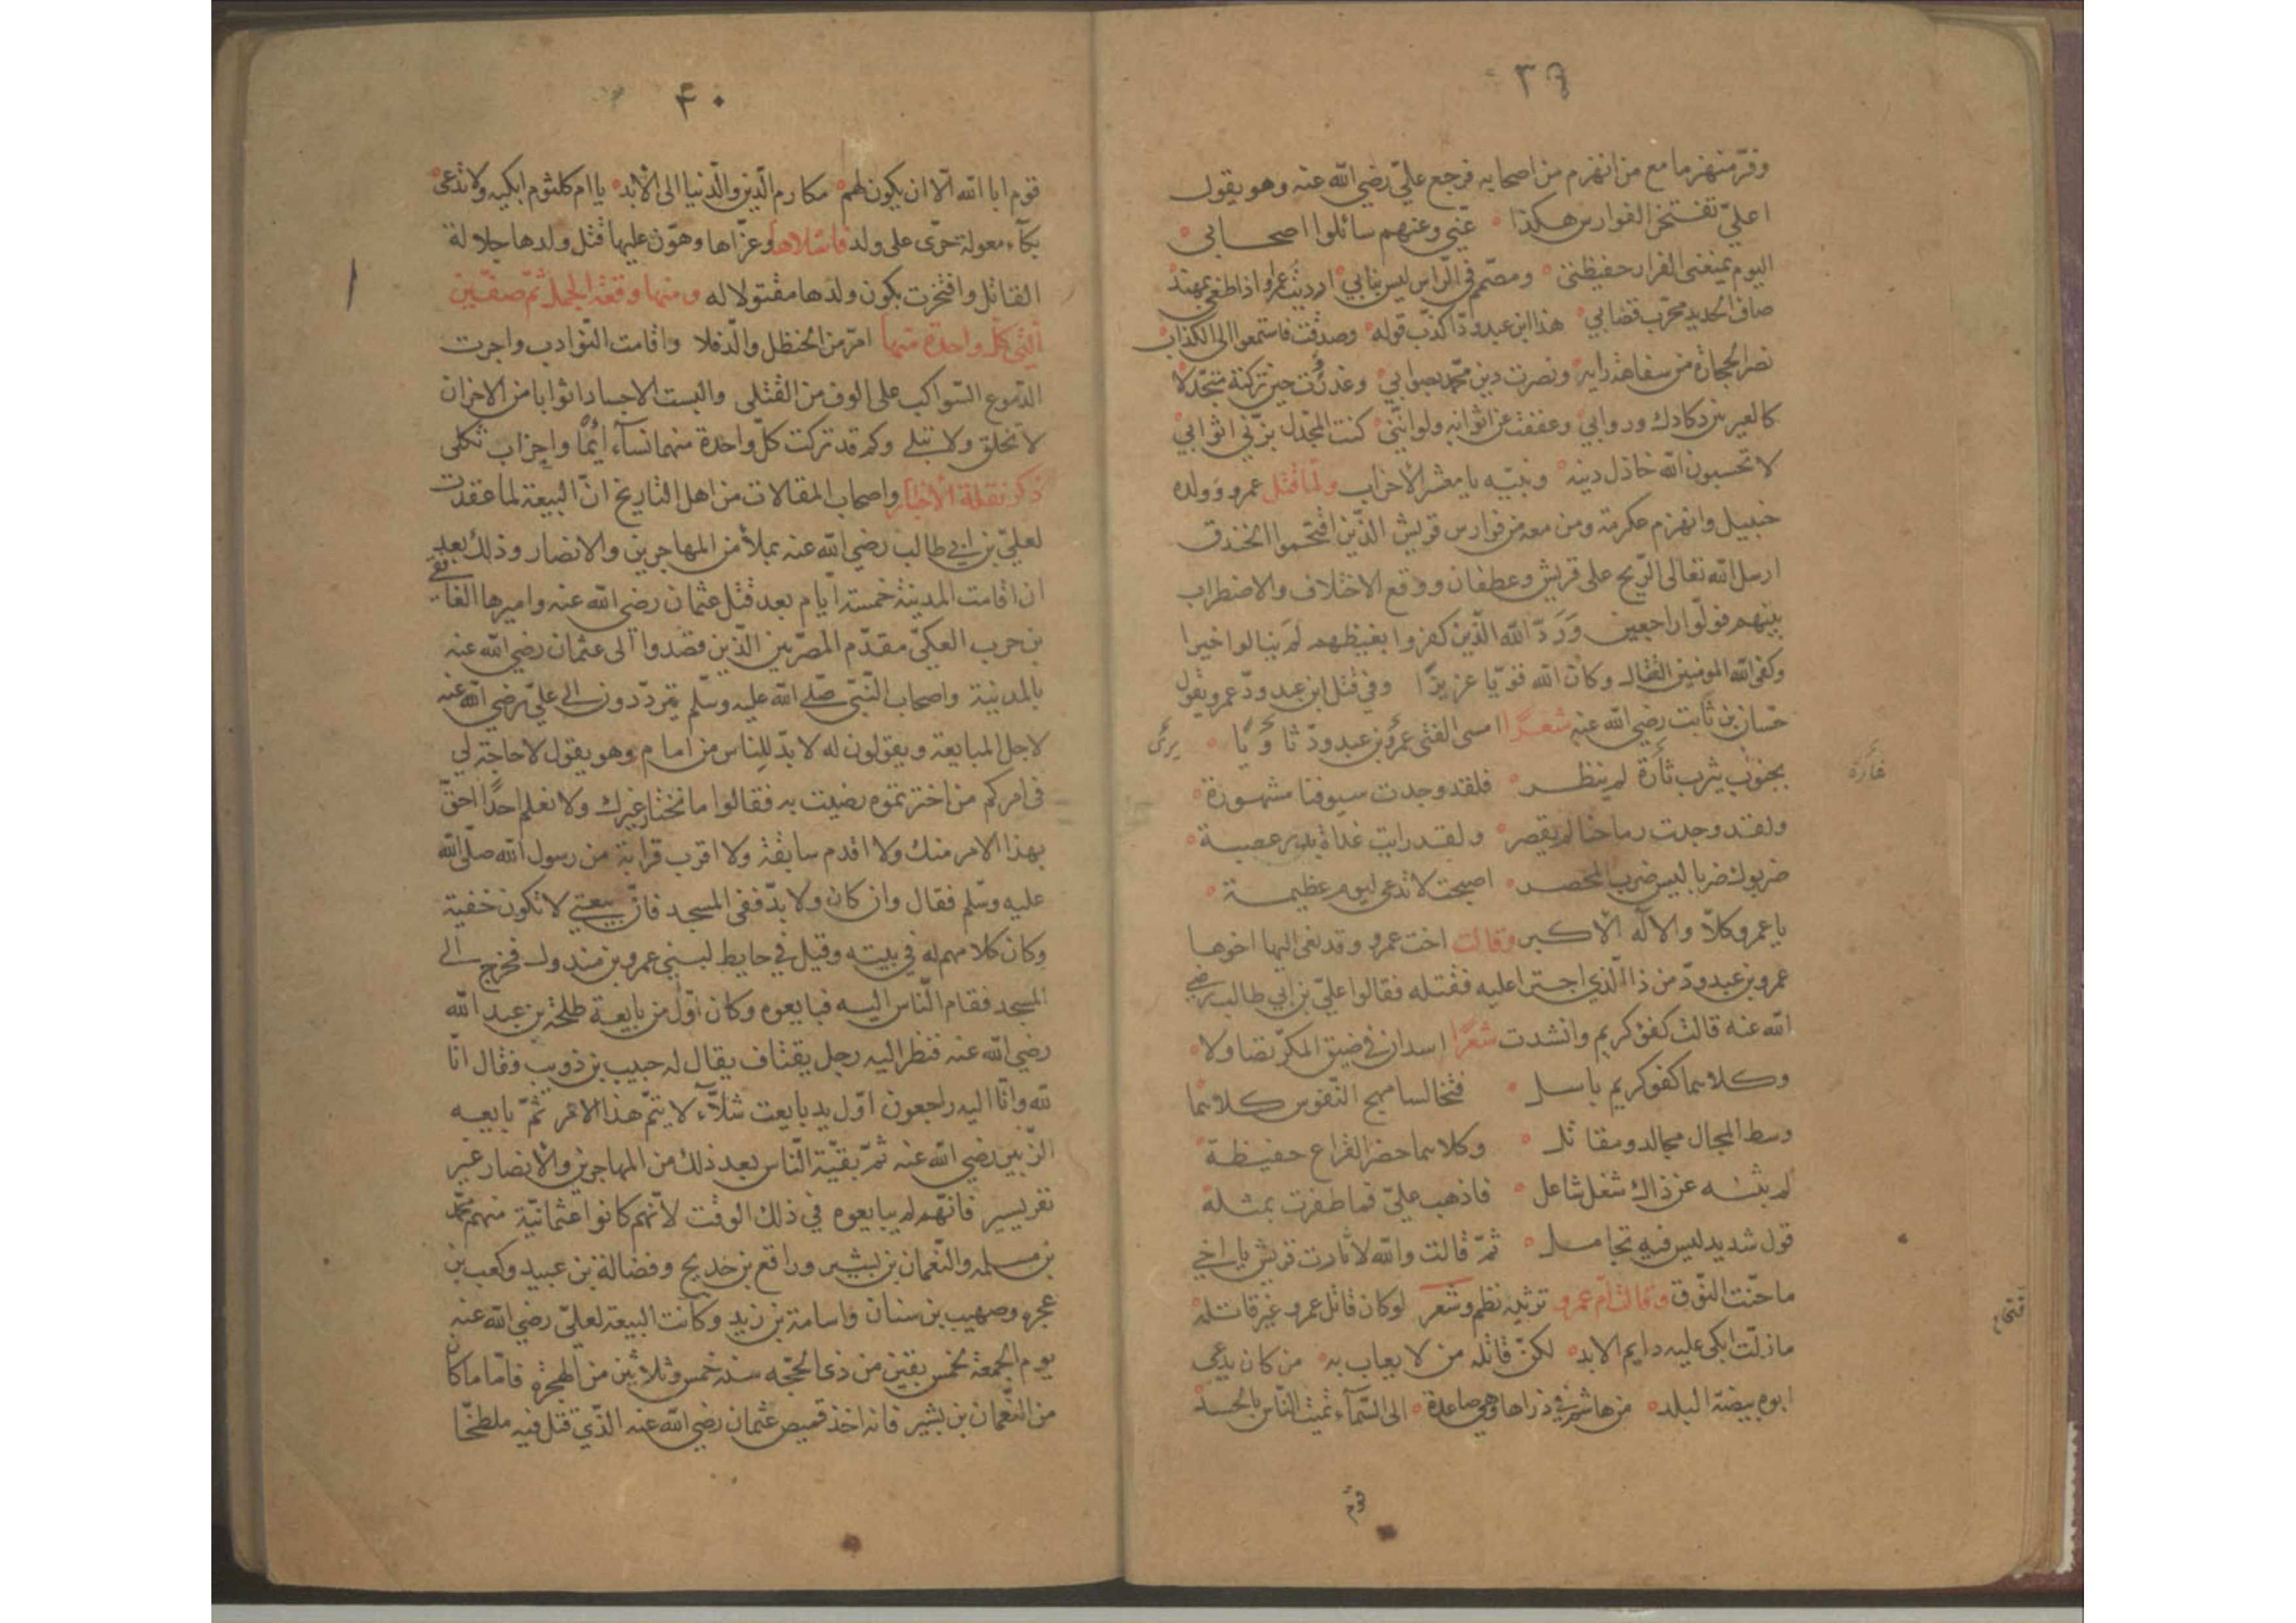 ٣٩
وفرّ منهزما مع من انهزم من اصحابه فرجع عليّ رضي الله عنه وهو يقول
اعليّ تفتخر الفوارس هكذا عنّي وعنهم سائلوا اصحابي
اليوم يمنعني الفرار حفيظتي ومصمّم في الرّاس ليس بنابي ارديت عمرا اذا طغى بمهند
صاف الحديد مجرّب قضابي هذا ابن عبدودّ كذب قوله وصدقت فاستمعوا الى الكذاب
نصر الحجارة من سفاهة رايه ونصرت دين محمّد بصوابي وغدوت حين تركته متجدّلا
كالعير بين دكادك وروابي وعففت عن اثوابه ولو انّني كنت المجدّل بزّني اثوابي
لا تحسبون الله خاذل دينه ونبيّه يا معشر الأحزاب ولمّا قتل عمرو وولده
حنبيل وانهزم عكرمة ومن معه من فوارس قريش الذّين اقتحموا الخندق
ارسل الله تعالى الرّيح على قريش وغطفان ووقع الاختلاف والاضطراب
بينهم فولّوا راجعين وَرَدّ الله الّذين كفروا بغيظهم لَم ينالوا خيرا
وكفى الله المومنين القتال وكان الله قويّا عزيزًا وفي قتل ابن عبدودّ عمرو يقول
حسّان بن ثابت رضي الله عنه شعرًا امسى الفتى عمرو بن عبدودّ ثاويًا
بجنوب يثرب ثأرة لم ينظر فلقد وجدت سيوفنا مشهورة
ولقد وجدت رماحنا لم يقصر ولقد رايت غداة بدر عصبة
ضربوك ضربا ليس ضرب المحصر اصبحت لا تدعى ليوم عظيمة
يا عمرو كلاّ والاله الأكبر وقالت اخت عمرو وقد نعى اليها اخوها
عمرو بن عبدودّ من ذا الّذي اجترا عليه فقتله فقالوا عليّ بن ابي طالب رضي
الله عنه قالت كفؤ كريم وانشدت شعرًا اسدان في ضيق المكرّ تصاولا
وكلاهما كفو كريم باسل فتخالسا مهج النّفوس كلاهما
وسط المجال مجالد ومقاتل وكلاهما حضر القراع حفيظة
لم يثنه عن ذاك شغل شاغل فاذهب عليّ فما ظفرت بمثله
قول شديد ليس فيه تحامل ثمّ قالت والله لا ثارت قريش باخي
ما حنّت النّوق وقالت امّ عمرو ترثيه نظم وشعر لو كان قاتل عمرو غير قاتله
ما زلت ابكي عليه دايم الابد لكنّ قاتله من لا يعاب به من كان يدعى
ابوه بيضة البلد من هاشم في ذراها وهي صاعدة الى السّمآء تميت النّاس بالحسد
قوم
٤٠
قوم ابا الله الّا ان يكون لهم مكارم الّدين والّدنيا الى الأبد يا ام كلثوم ابكيه ولا تدعي
بكآء معولة حرّى على ولد فاسلاها وعزّاها وهوّن عليها قتل ولدها جلالة
القاتل وافتخرت بكون ولدها مقتولا له ومنها وقعة الجمل ثمّ صفّين
الّتي كلّ واحدة منها امرّ من الحنظل والّدفلا واقامت النّوادب واجرت
الدّموع السّواكب على الوف من القتلى والبست الاجساد اثوابا من الاحزان
لا تخلق ولا تبلى وكم قد تركت كلّ واحدة منهما نسآء ايّمًا واحزاب ثكلى
ذكر نقلة الأخبار واصحاب المقالات من اهل التاريخ انّ البيعة لما عقدت
لعليّ بن ابي طالب رضي الله عنه بملأ من المهاجرين والانصار وذلك بعد
ان اقامت المدينة خمسة ايّام بعد قتل عثمان رضي الله عنه واميرها الغافقي
بن حرب العكيّ مقدّم المصرّيين الّذين قصدوا الى عثمان رضي الله عنه
بالمدينة واصحاب النّبيّ صّلى الله عليه وسلّم يتردّدون الى عليّ رضي الله عنه
لاجل المبايعة ويقولون له لا بدّ للنّاس من امام وهو يقول لا حاجة لي
في امركم من اخترتموه رضيت به فقالوا ما نختار غيرك ولا نعلم احدًا احقّ
بهذا الامر منك ولا اقدم سابقة ولا اقرب قرابة من رسول الله صلّى الله
عليه وسّلم فقال وان كان ولا بدّ ففي المسجد فانّ بيعتي لا تكون خفية
وكان كلامهم له في بيته وقيل في حايط لبني عمرو بن مندول فخرج الى
المسجد فقام الّناس اليه فبايعوه وكان اوّل من بايعه طلحة بن عبد الله
رضي الله عنه فنظر اليه رجل يقتاف يقال له حبيب بن ذويب فقال انّا
لله وانّا اليه راجعون اوّل يد بايعت شلاّء لا يتمّ هذا الامر ثمّ بايعه
الزّبير رضي الله عنه ثمّ بقيّة النّاس بعد ذلك من المهاجرين والأنصار غير
نفر يسير فانّهم لم يبايعوه في ذلك الوقت لانّهم كانوا عثمانيّة منهم محمّد
بن مسلمه والنّعمان بن بشير ورافع بن خديج وفضالة بن عبيد وكعب بن
عجره وصهيب بن سنان واسامة بن زيد وكانت البيعة لعليّ رضي الله عنه
يوم الجمعة لخمس بقين من ذى الحجّه سنه خمس وثلاثين من الهجرة فامّا ما كان
من النّعمان بن بشير فانه اخذ قميص عثمان رضي الله عنه الّذي قتل فيه ملطخّا